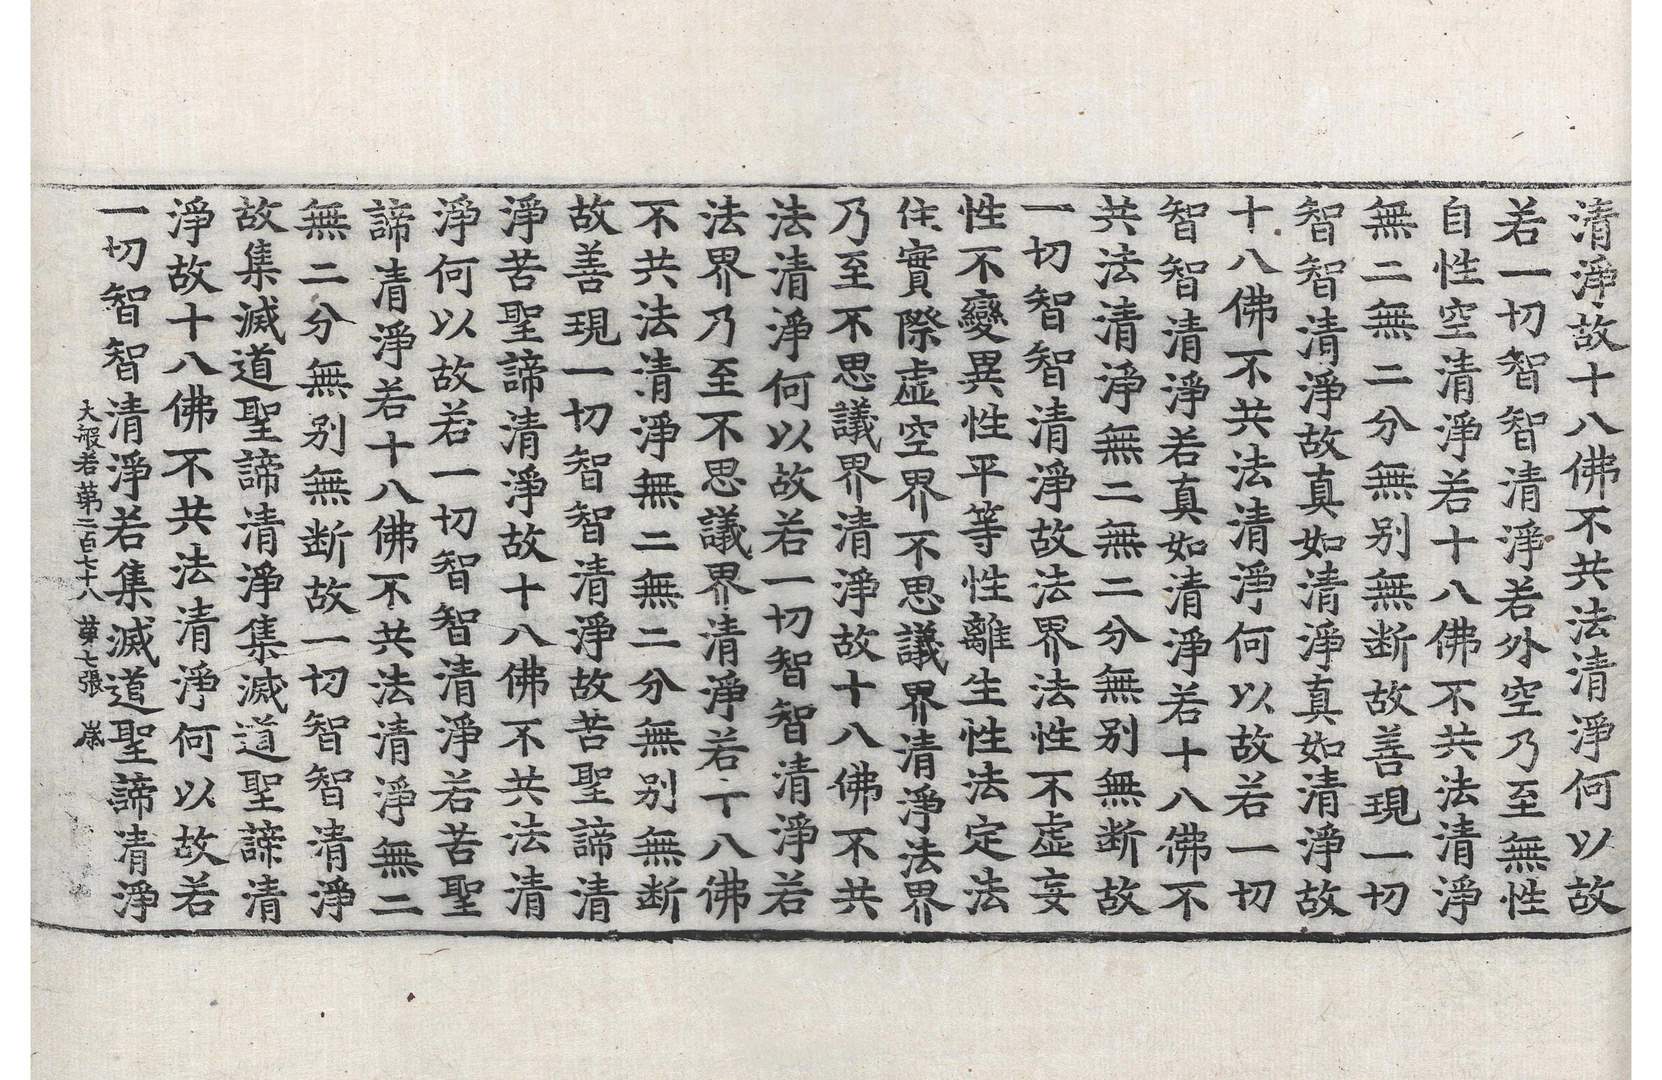 清淨故十八佛不共法清淨何以故
若一切智智清淨若外空乃至無性
自性空清淨若十八佛不共法清淨
無二無二分無别無断故善現一切
智智清淨故真如清淨真如清淨故
十八佛不共法清淨何以故若一切
智智清淨若真如清淨若十八佛不
共法清淨無二無二分無别無断故
一切智智清淨故法界法性不虚妄
性不變異性平等性離生性法定法
住實際虚空界不思議界清淨法界
乃至不思議界清淨故十八佛不共
法清淨何以故若一切智智清淨若
法界乃至不思議界清淨若十八佛
不共法清淨無二無二分無别無断
故善現一切智智清淨故苦聖諦清
淨苦聖諦清淨故十八佛不共法清
淨何以故若一切智智清淨若苦聖
諦清淨若十八佛不共法清淨無二
無二分無别無断故一切智智清淨
故集滅道聖諦清淨集滅道聖諦清
淨故十八佛不共法清淨何以故若
一切智智清淨若集滅道聖諦清淨
大般若第二百七十八 第七張 歲